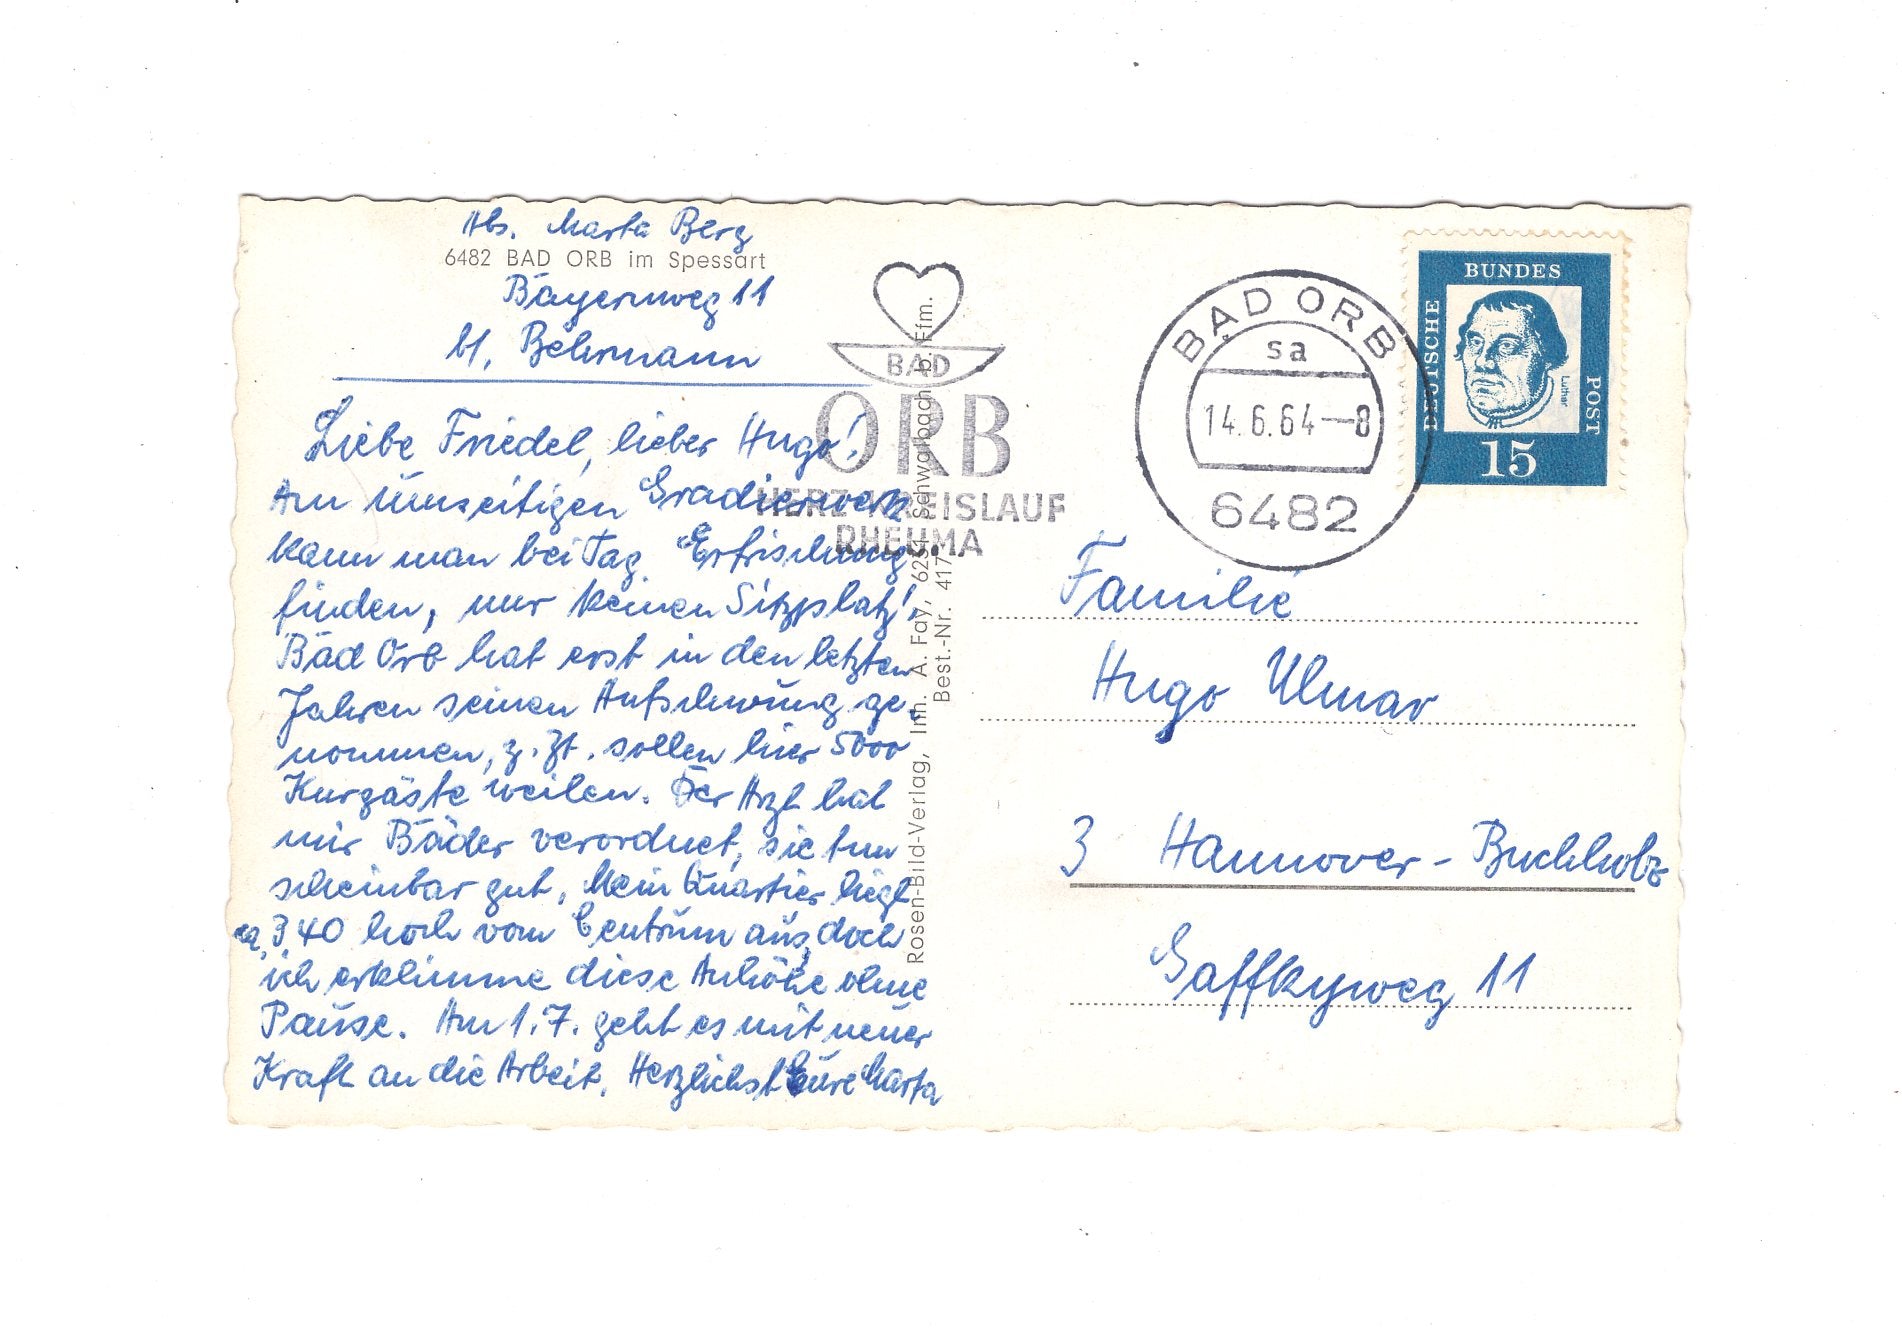 Abs. Marta Berg
6482 BAD ORB im Spessart
Bayernweg 11
bf. Behrmann
Liebe Friedel, lieber Hugo!
Am umseitigen Gradierwerk
kann man bei Tag Erfrischung
finden, nur keinen Sitzplatz!
Bad Orb hat erst in den letzten
Jahren seinen Aufschwung ge-
nommen, z. Zt. sollen hier 5000
Kurgäste weilen. Der Arzt hat
mir Bäder verordnet, sie tun
scheinbar gut, Mein Quartier liegt
ca. 340 hoch vom Centrum aus, doch
ich erklimme diese Anhöhe ohne
Pause. Am 1.7. geht es mit neuer
Kraft an die Arbeit. Herzlichst Eure Marta
BAD
ORB
HERZ-KREISLAUF
RHEUMA
Rosen-Bild-Verlag, Inh. A. Fay, 6231 Schwalbach b. Ffm.
Best.-Nr. 417
BAD ORB
sa
14.6.64-8
6482
DEUTSCHE
BUNDES
POST
Luther
15
Familie
Hugo Ulmar
3 Hannover-Buchholz
Gaffkyweg 11